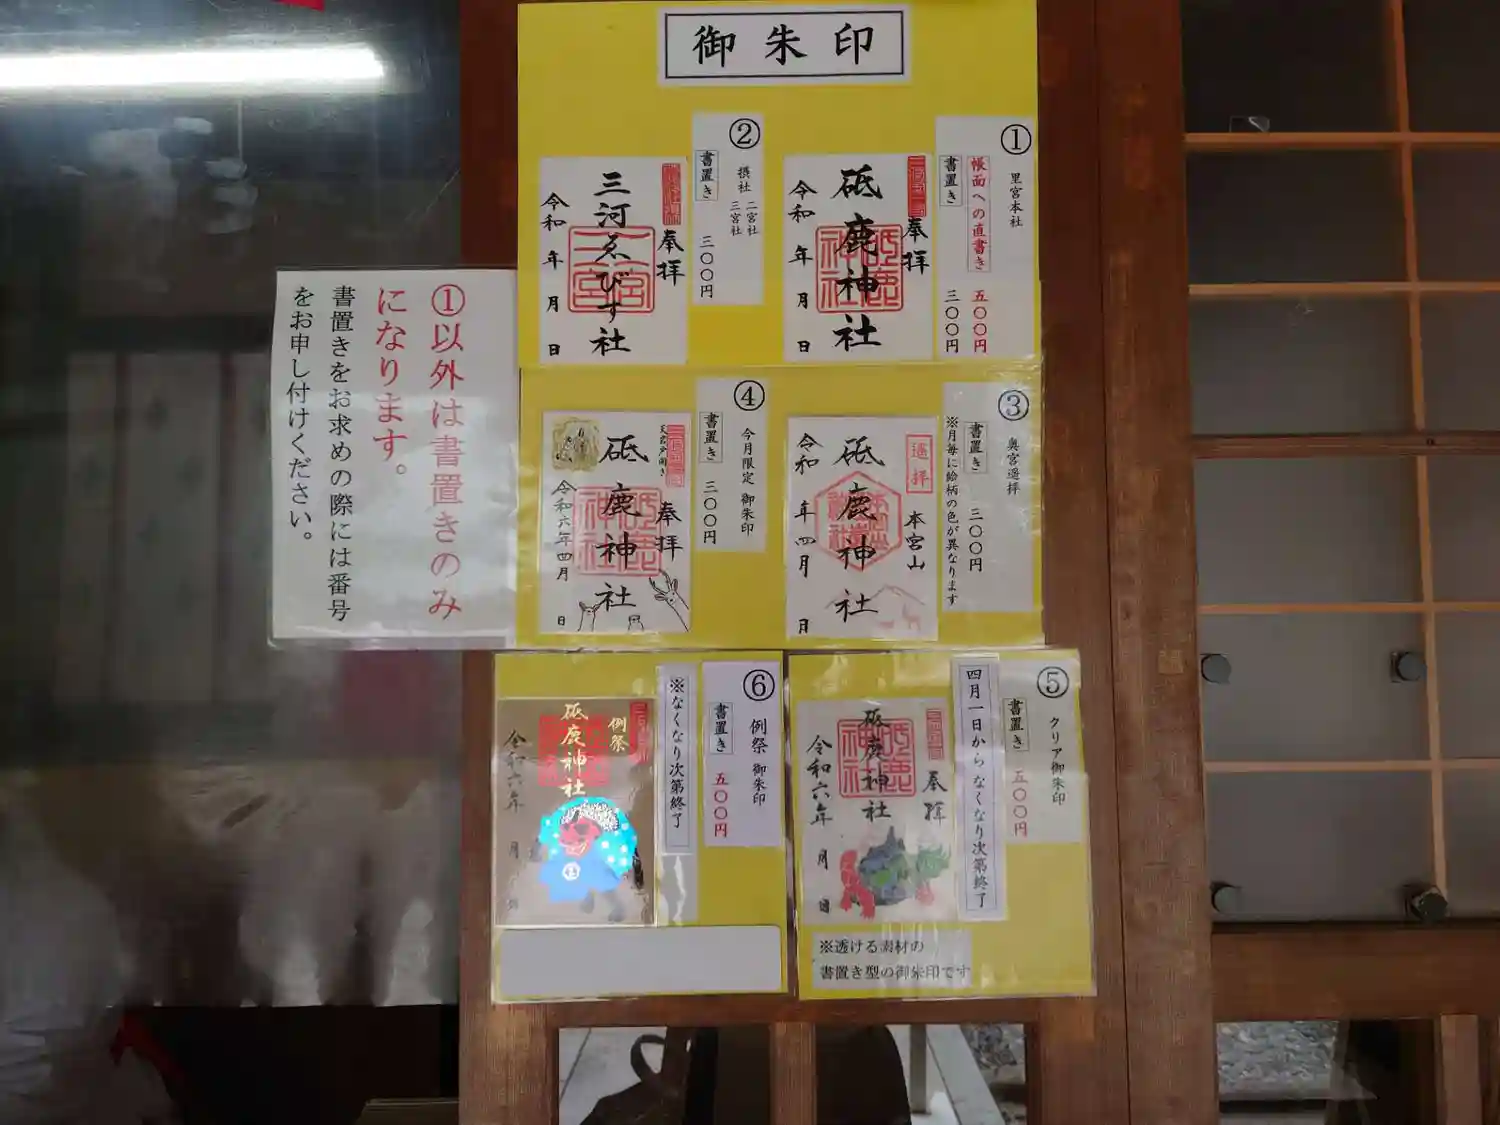 御朱印
①
里宮本社
帳面への直書き 五〇〇円
書置き 三〇〇円
奉拝
砥鹿神社
令和 年 月 日
②
摂社 二宮社
三宮社
書置き 三〇〇円
奉拝
三河ゑびす社
二宮
三宮
令和 年 月 日
③
奥宮遥拝
書置き 三〇〇円
※月毎に絵柄の色が異なります
遥拝
本宮山
砥鹿神社
令和 年四月 日
④
今月限定 御朱印
書置き 三〇〇円
奉拝
砥鹿神社
令和六年四月 日
⑤
クリア御朱印
書置き 五〇〇円
四月一日から なくなり次第終了
奉拝
砥鹿神社
令和六年 月 日
※透ける素材の
書置き型の御朱印です
⑥
例祭 御朱印
書置き 五〇〇円
※なくなり次第終了
例祭
砥鹿神社
令和六年 月 日
①以外は書置きのみ
になります。
書置きをお求めの際には番号
をお申し付けください。